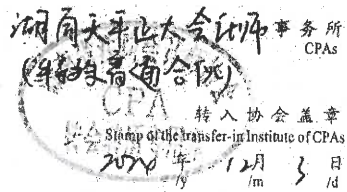 湖南天平正大会计师事务所
CPAs
(特殊普通合伙)
CPA
转入协会盖章
Stamp of the transfer-in Institute of CPAs
年 12月 3日
/y /m /d